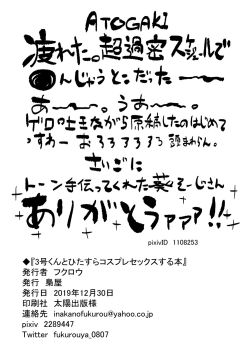 ATOGAKI
疲れた。超過密スケジュールで
●んじゃうとこだった〜〜
あ〜〜。うあ〜〜。
ゲロ吐きながら原稿したのはじめて
っすわー おろろろろろろ 頭まわらん。
さいごに
トーン手伝ってくれた葵えーじさん
ありがとうァァァ!!
pixivID 1108253
◆『3号くんとひたすらコスプレセックスする本』
発行者 フクロウ
発行 梟屋
発行日 2019年12月30日
印刷社 太陽出版様
連絡先 inakanofukurou@yahoo.co.jp
pixiv 2289447
Twitter fukurouya_0807